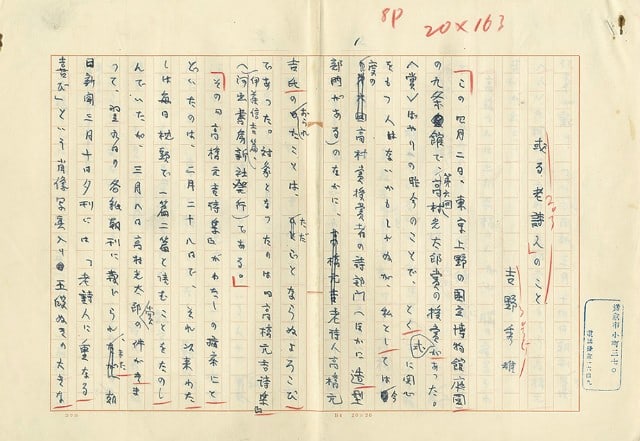 8P
20×163
或る老詩人のこと
吉野秀雄
この四月二日、東京上野の国立博物館庭園
の九条館で、第六回高村光太郎賞の授賞があった。
〈賞〉ばやりの昨今のことで、とくに関心
をもつ人はないかもしれぬが、私としては今
度の高村賞授賞者の詩部門(ほかに造型
部門がある)のなかに、老詩人高橋元
吉氏のおられたことは、ただならぬよろこび
であった。対象となったのは『高橋元吉詩集』
(伊藤信吉編、河出書房新社発行)である。
その『高橋元吉詩集』がわたしの病床にと
どいたのは、二月二十八日で、それ以来わた
しは毎日枕頭で一篇二篇と読むことをたのし
んでいたが、三月八日高村光太郎賞の件がきま
って、翌九日の各紙朝刊に報じられ、朝
日新聞三月十日夕刊には「老詩人に重なる
喜び」という肖像写真入り五段ぬきの大きな
鎌倉市小町三七〇